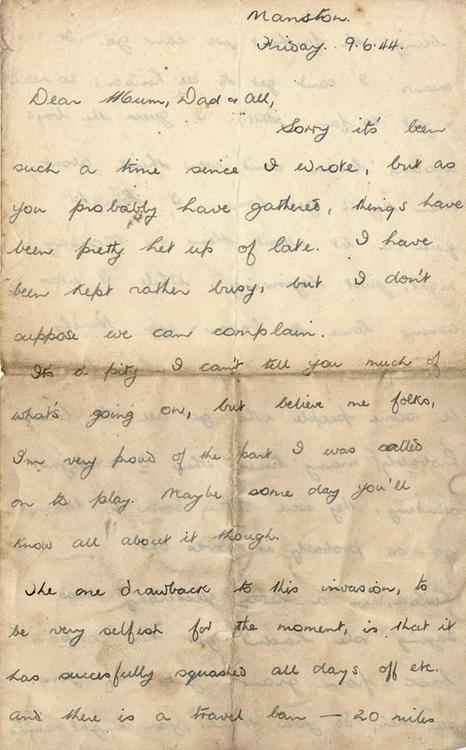 Manston.
Friday. 9.6.44.
Dear Mum, Dad & all,
Sorry it's been
such a time since I wrote, but as
you probably have gathered, things have
been pretty het up of late. I have
been kept rather busy, but I don't
suppose we can complain.
Its a pity I can't tell you much of
what's going on, but believe me folks,
I'm very proud of the part I was called
on to play. Maybe some day you'll
know all about it though.
The one drawback to this invasion, to
be very selfish for the moment, is that it
has succesfully squashed all days off etc.
and there is a travel ban — 20 miles